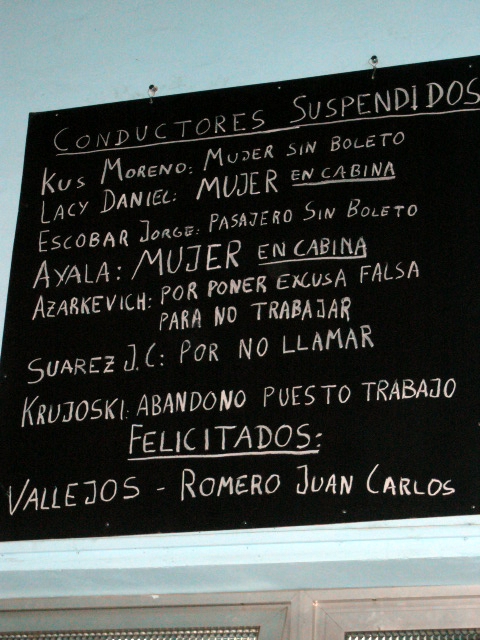 CONDUCTORES SUSPENDIDOS
KUS MORENO: MUJER SIN BOLETO
LACY DANIEL: MUJER EN CABINA
ESCOBAR JORGE: PASAJERO SIN BOLETO
AYALA: MUJER EN CABINA
AZARKEVICH: POR PONER EXCUSA FALSA
PARA NO TRABAJAR
SUAREZ J.C: POR NO LLAMAR
KRUJOSKI: ABANDONO PUESTO TRABAJO
FELICITADOS:
VALLEJOS - ROMERO JUAN CARLOS